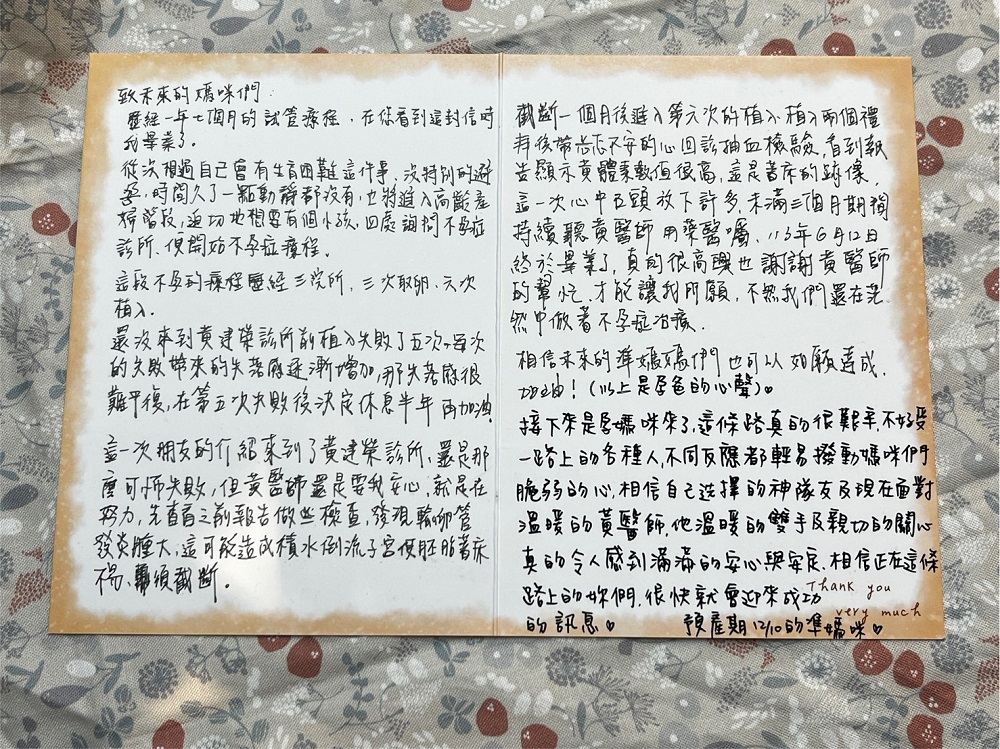 致未來的媽咪們:
歷經一年七個月的試管療程，在您看到這封信時
我畢業了。
從沒想過自己會有生育困難這件事、沒特別的避
孕，時間久了一點動靜都沒有，也將進入高齡產
婦階段，迫切地想要有個小孩，四處詢問不孕症
診所、便開始不孕症療程。
這段不孕的療程歷經三院所，三次取卵、六次
植入。
還沒來到黃建榮診所前植入失敗了五次，每次
的失敗帶來的失落感逐漸增加，那失落感很
難平復，在第五次失敗後決定休息半年再加油
這一次朋友的介紹來到了黃建榮診所，還是那
麼可怕失敗，但黃醫師還是要我安心，就是在
努力，先查看之前報告做些檢查，發現輸卵管
發炎腫大，這可能造成積水倒流子宮使胚胎著床
不易、需須截斷。
截斷一個月後進入第六次的植入，植入兩個禮
拜後帶忐忑不安的心回診抽血檢驗，看到報
告顯示黃體素數值很高，這是著床的跡像，
這一次心中石頭放下許多，未滿三個月期間
持續聽黃醫師用藥醫囑、113年6月12日
終於畢業了，真的很高興也謝謝黃醫師
的幫忙，才能讓我所願，不然我們還在茫
然中做著不孕症治療。
相信未來的準媽媽們也可以如願達成，
加油！(以上是爸爸的心聲)♡
接下來是媽咪來了，這條路真的很艱辛，不好受
一路上的各種人，不同反應都輕易撥動媽咪們
脆弱的心，相信自己選擇的神隊友及現在面對
溫暖的黃醫師，他溫暖的雙手及親切的關心
真的令人感到滿滿的安心與安定，相信正在這條
路上的妳們，很快就會迎來成功
的訊息♡ 預產期12/10的準媽咪♡
Thank you
very much